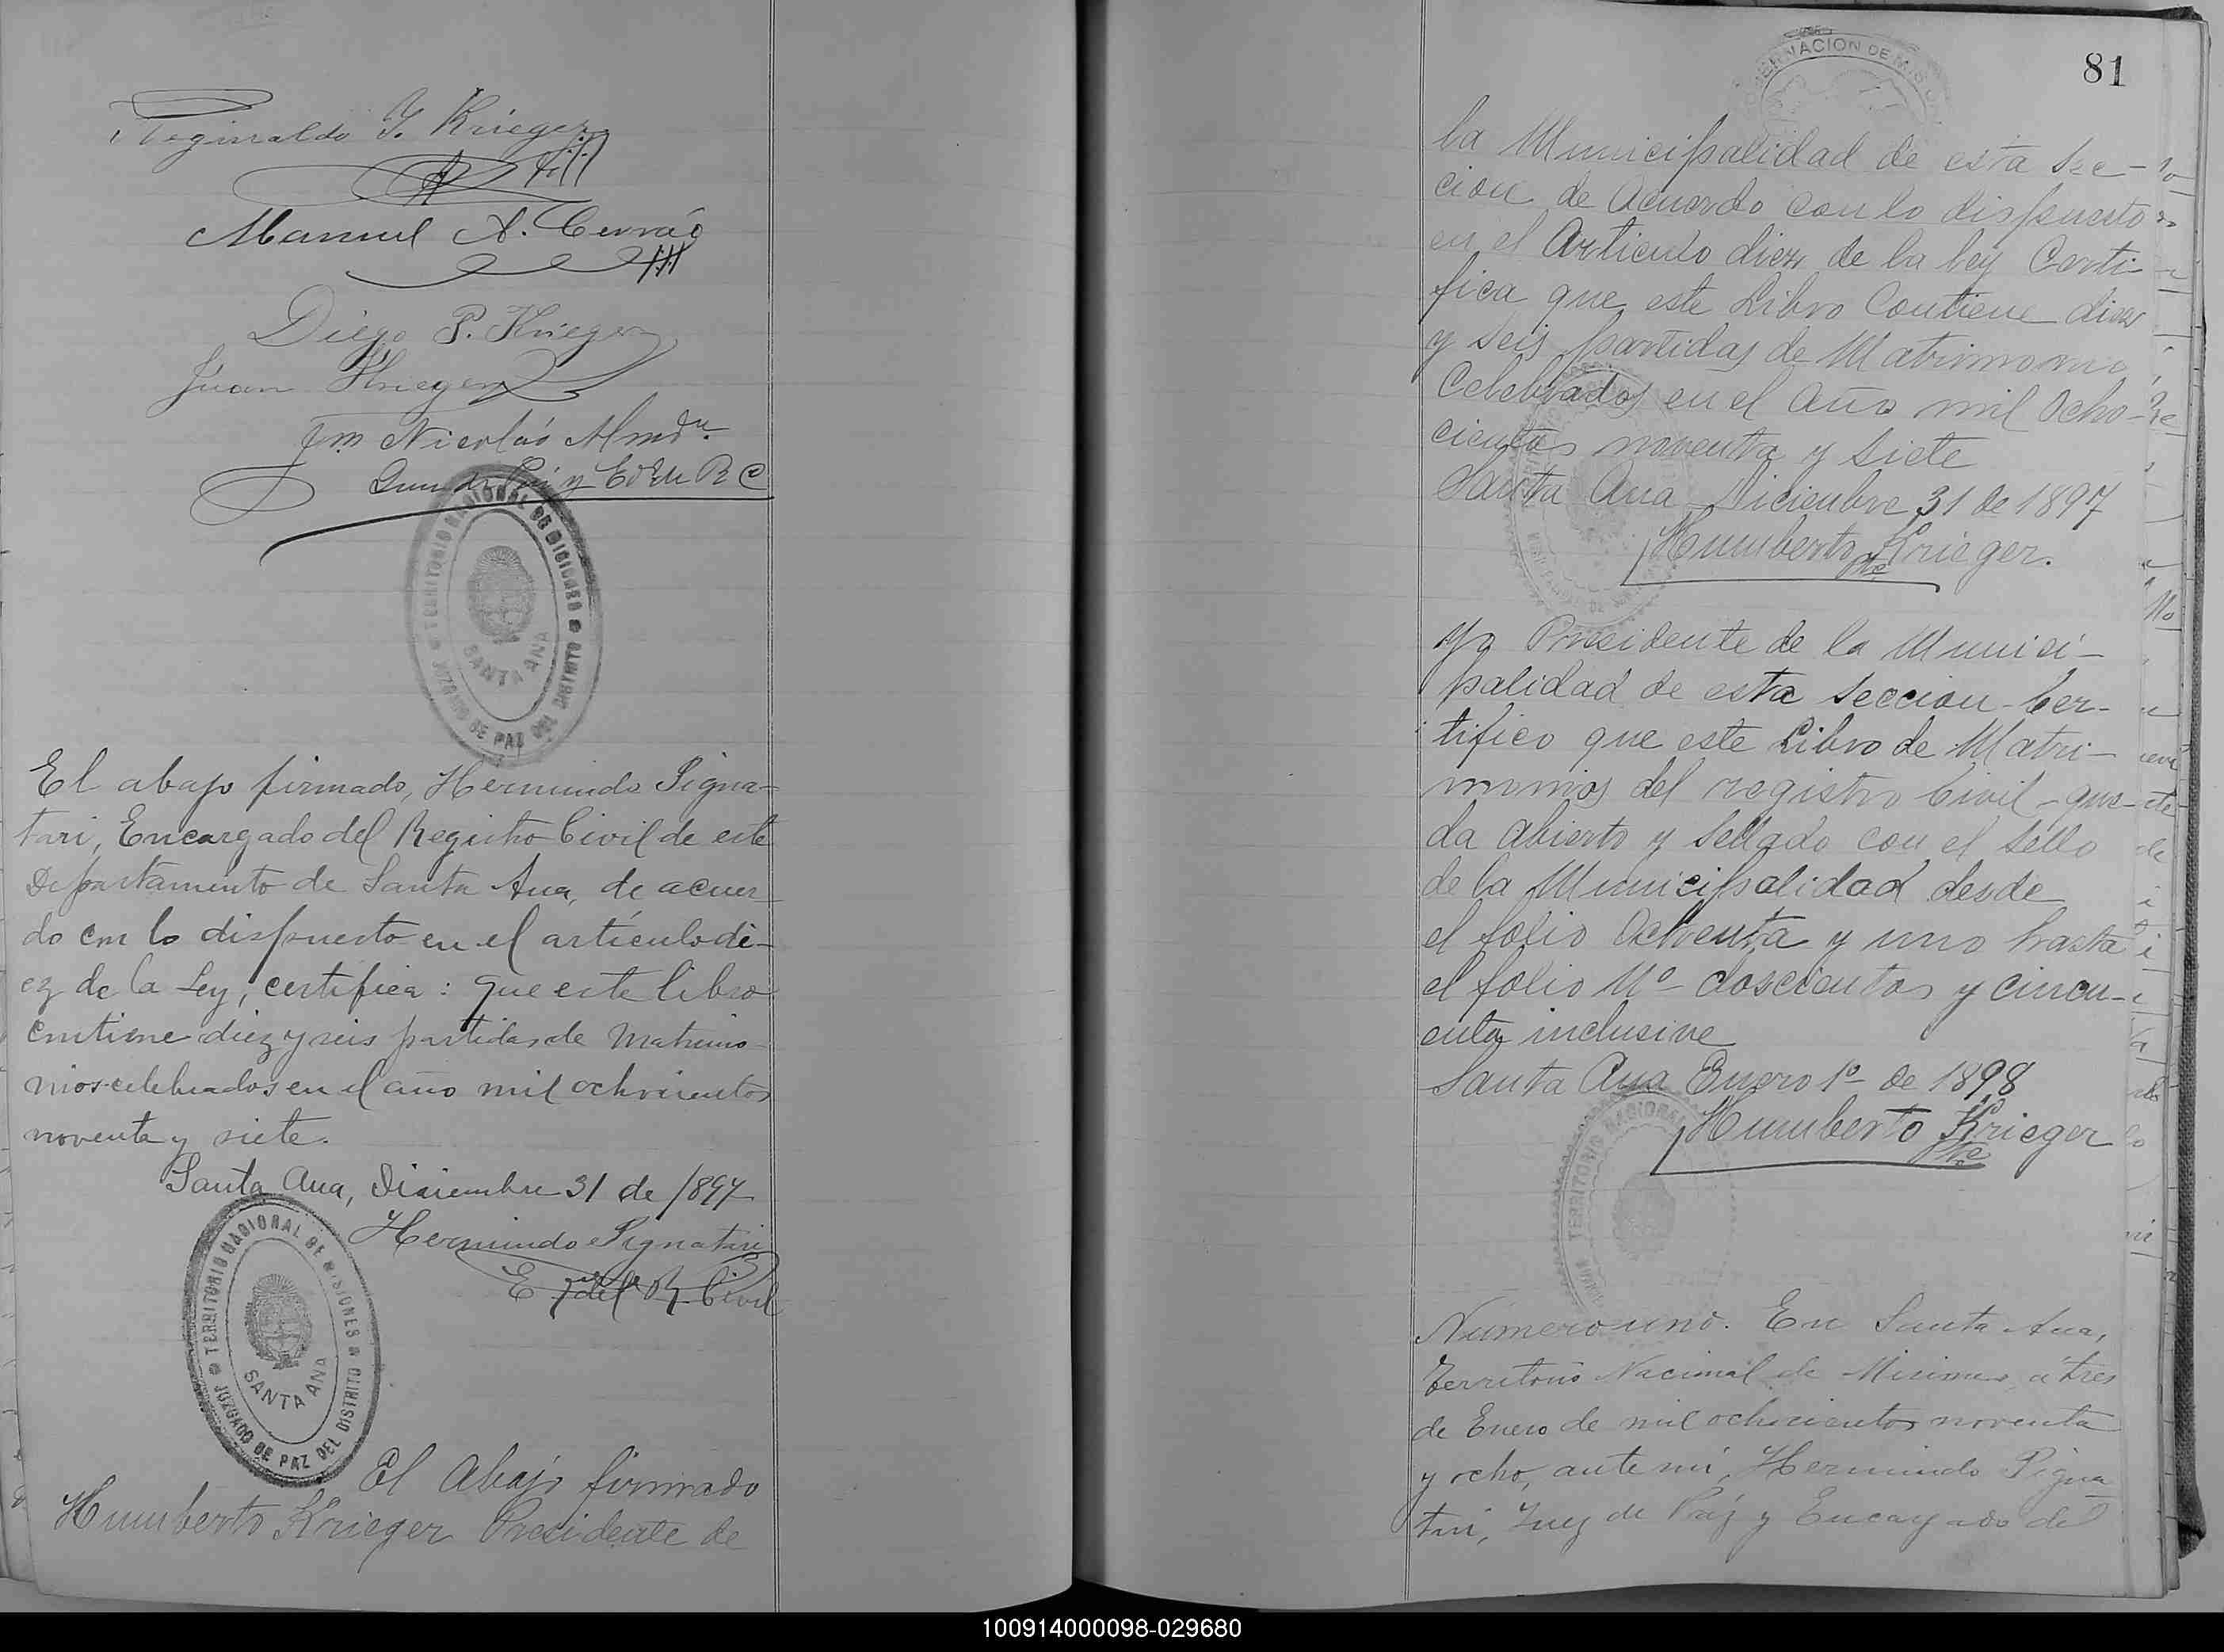 Reginaldo Y. Krieger
Manuel A.
Diego P. Krieger
Juan Krieger
Nicolás
TERRITORIO NACIONAL DE MISIONES
JUZGADO DE PAZ DEL DISTRITO
SANTA ANA
El abajo firmado, Hermindo Signa-
tari, Encargado del Registro Civil de este
Departamento de Santa Ana, de acuer
do con lo dispuesto en el artículo di-
ez de la Ley, certifica: que este libro
contiene diez y seis partidas de Matrimo
nios celebrados en el año mil ochocientos
noventa y siete.
Santa Ana, Diciembre 31 de 1897
Hermindo Pignatari
E del R. Civil
TERRITORIO NACIONAL DE MISIONES
JUZGADO DE PAZ DEL DISTRITO
SANTA ANA
El Abajo firmado
Humberto Krieger Presidente de
81
GOBERNACION DE MISIONES
la Municipalidad de esta sec-
cion de Acuerdo con lo dispuesto
en el Articulo diez de la ley Certi
fica que este Libro Contiene diez
y seis partidas de Matrimonio
Celebrados en el Año mil Ocho-
cientos noventa y siete
Santa Ana Diciembre 31 de 1897
Humberto Krieger.
Pte
Yo Presidente de la Munici-
palidad de esta seccion Cer-
tifico que este Libro de Matri-
monios del registro Civil que-
da abierto y sellado con el sello
de la Municipalidad desde
el folio Ochenta y uno hasta
el folio Nº doscientos y cincu-
enta inclusive
Santa Ana Enero 1º de 1898
Humberto Krieger
Pte
Número uno. En Santa Ana,
Territorio Nacional de Misiones, á tres
de Enero de mil ochocientos noventa
y ocho, ante mí, Hermindo Pigna
tari, Juez de Paz y Encargado del
100914000098-029680